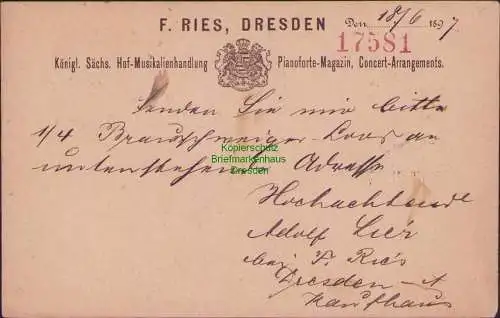 F. RIES, DRESDEN
Den 18/6 1897
17581
Königl. Sächs. Hof-Musikalienhandlung Pianoforte-Magazin, Concert-Arrangements.
Senden Sie mir bitte
1/4 Braunschweiger Loos an
untenstehende Adresse
Kopierschutz
Briefmarkenhaus
Dresden
Hochachtend
Adolf
bei F. Ries
Dresden-A
Kaufhaus